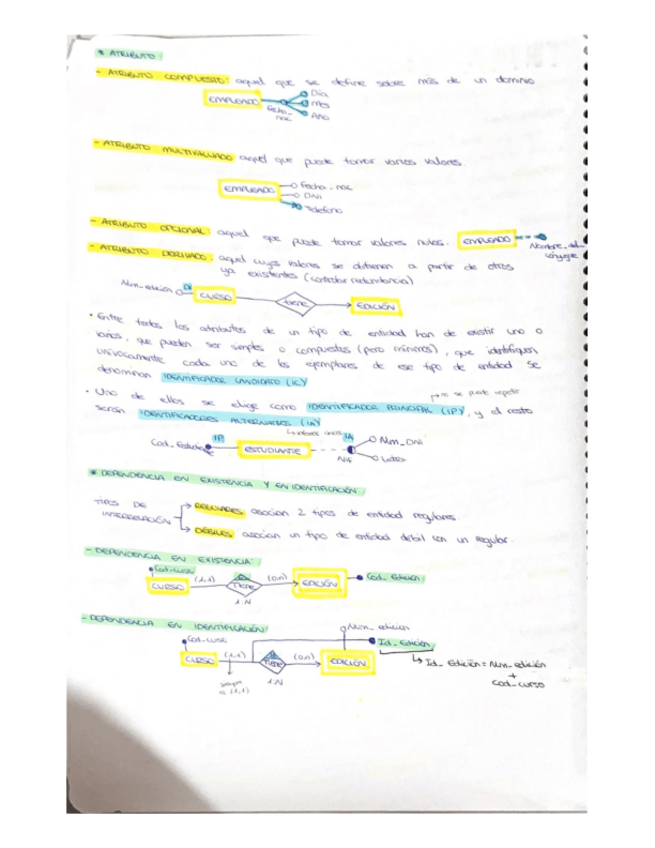 * ATRIBUTO:
- ATRIBUTO COMPUESTO: aquel que se define sobre más de un dominio
EMPLEADO Fecha_nac Día Mes Año
- ATRIBUTO MULTIVALUADO aquel que puede tomar varios valores.
EMPLEADO Fecha_nac DNI Teléfono
- ATRIBUTO OPCIONAL: aquel que puede tomar valores nulos. EMPLEADO Nombre_del_cónyuge
- ATRIBUTO DERIVADO: aquel cuyos valores se obtienen a partir de otros
ya existentes (controlar redundancia)
Num_edición CURSO tiene EDICIÓN
· Entre todos los atributos de un tipo de entidad han de existir uno o
varios, que pueden ser simples o compuestos (pero mínimos), que identifiquen
unívocamente cada uno de los ejemplares de ese tipo de entidad se
denominan IDENTIFICADOR CANDIDATO (IC)
no se puede repetir
· Uno de ellos se elige como IDENTIFICADOR PRINCIPAL (IP), y el resto
serán IDENTIFICADORES ALTERNATIVOS (IA)
Cod_Estudiante IP ESTUDIANTE IA NIF Num_DNI Letra
* DEPENDENCIA EN EXISTENCIA Y EN IDENTIFICACIÓN
TIPOS DE INTERRELACIÓN
REGULARES asocian 2 tipos de entidad regulares.
DÉBILES asocian un tipo de entidad débil con un regular.
- DEPENDENCIA EN EXISTENCIA:
Cod_curso
CURSO (1,1) Tiene (0,n) EDICIÓN Cod_Edición
1:N
- DEPENDENCIA EN IDENTIFICACIÓN:
Cod_curso Num_edición Id_Edición
CURSO (1,1) Tiene (0,n) EDICIÓN
Id_Edición = Num_edición
+
Cod_curso
siempre es (1,1) 1:N